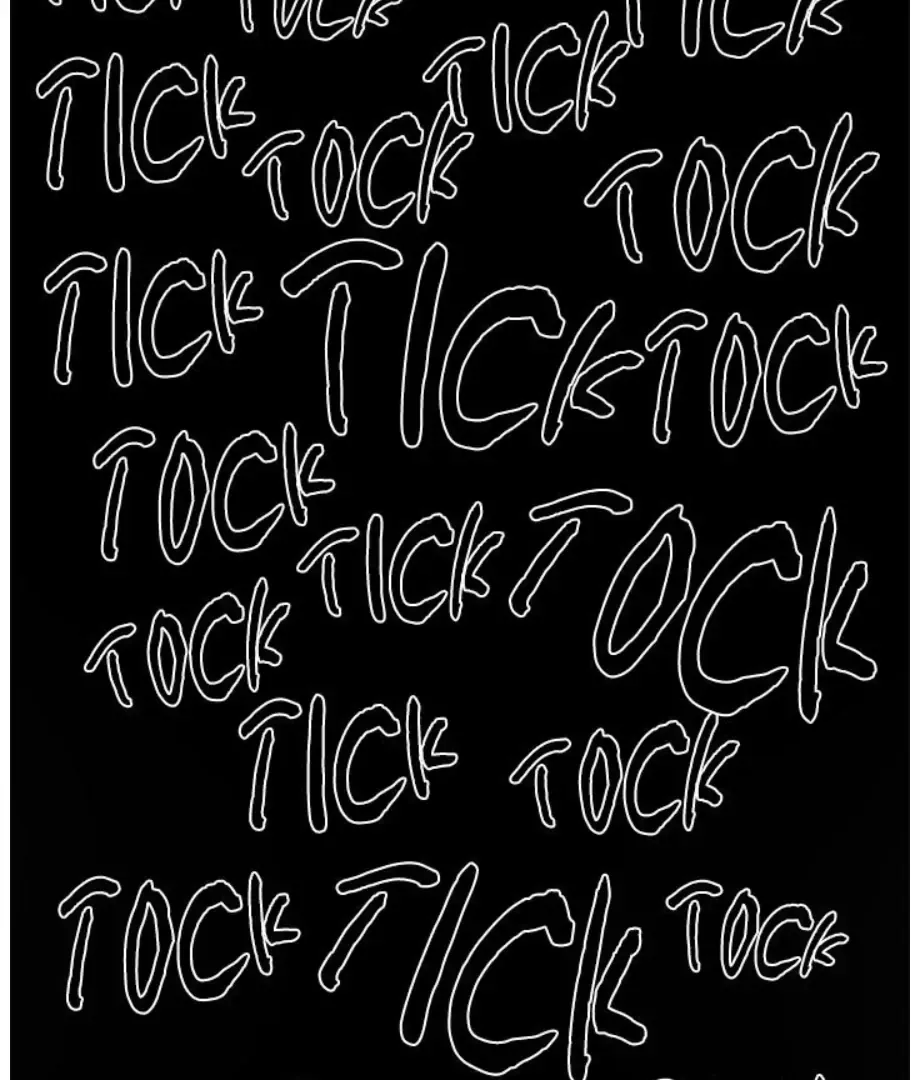 TOCK
TICK TICK
TOCK TOCK
TICK TICK TOCK
TOCK
TICK TOCK
TOCK
TICK TOCK
TOCK TICK TOCK